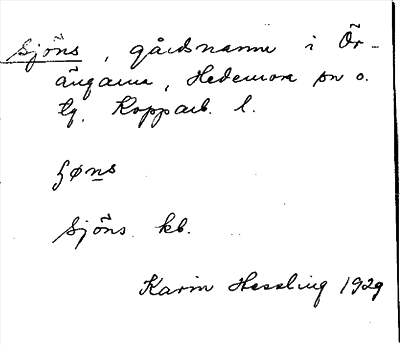 Sjöns, gårdsnamn i Ör-
ängarna, Hedemora sn o.
tg. Kopparb. l.
ʃøns
Sjöns kb.
Karin Hessling 1929